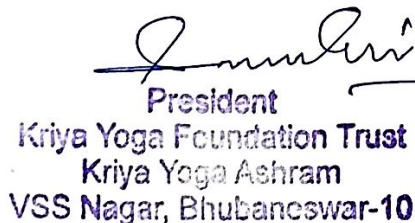 President
Kriya Yoga Foundation Trust
Kriya Yoga Ashram
VSS Nagar, Bhubaneswar-10